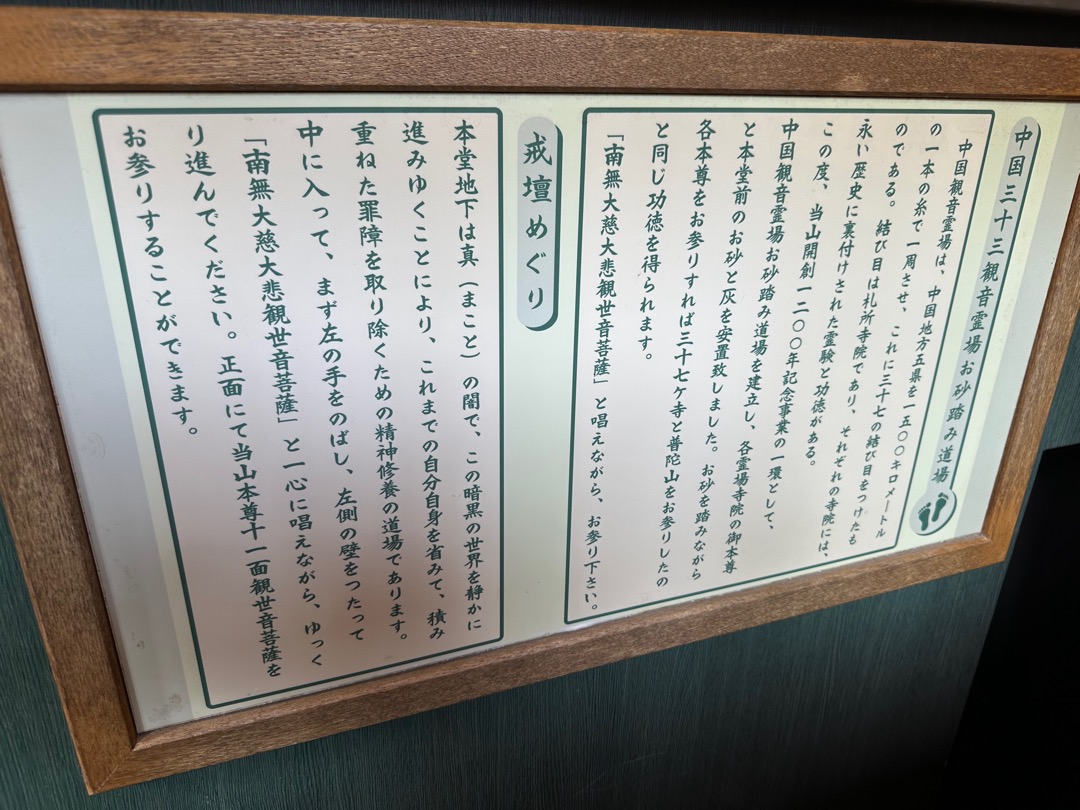 中国三十三観音霊場お砂踏み道場
中国観音霊場は、中国地方五県を一五〇〇キロメートル
の一本の糸で一周させ、これに三十七の結び目をつけたも
のである。結び目は札所寺院であり、それぞれの寺院には、
永い歴史に裏付けされた霊験と功徳がある。
この度、当山開創一二〇〇年記念事業の一環として、
中国観音霊場お砂踏み道場を建立し、各霊場寺院の御本尊
と本堂前のお砂と灰を安置致しました。お砂を踏みながら
各本尊をお参りすれば三十七ケ寺と普陀山をお参りしたの
と同じ功徳を得られます。
「南無大慈大悲観世音菩薩」と唱えながら、お参り下さい。
戒壇めぐり
本堂地下は真（まこと）の闇で、この暗黒の世界を静かに
進みゆくことにより、これまでの自分自身を省みて、積み
重ねた罪障を取り除くための精神修養の道場であります。
中に入って、まず左の手をのばし、左側の壁をつたって
「南無大慈大悲観世音菩薩」と一心に唱えながら、ゆっく
り進んでください。正面にて当山本尊十一面観世音菩薩を
お参りすることができます。